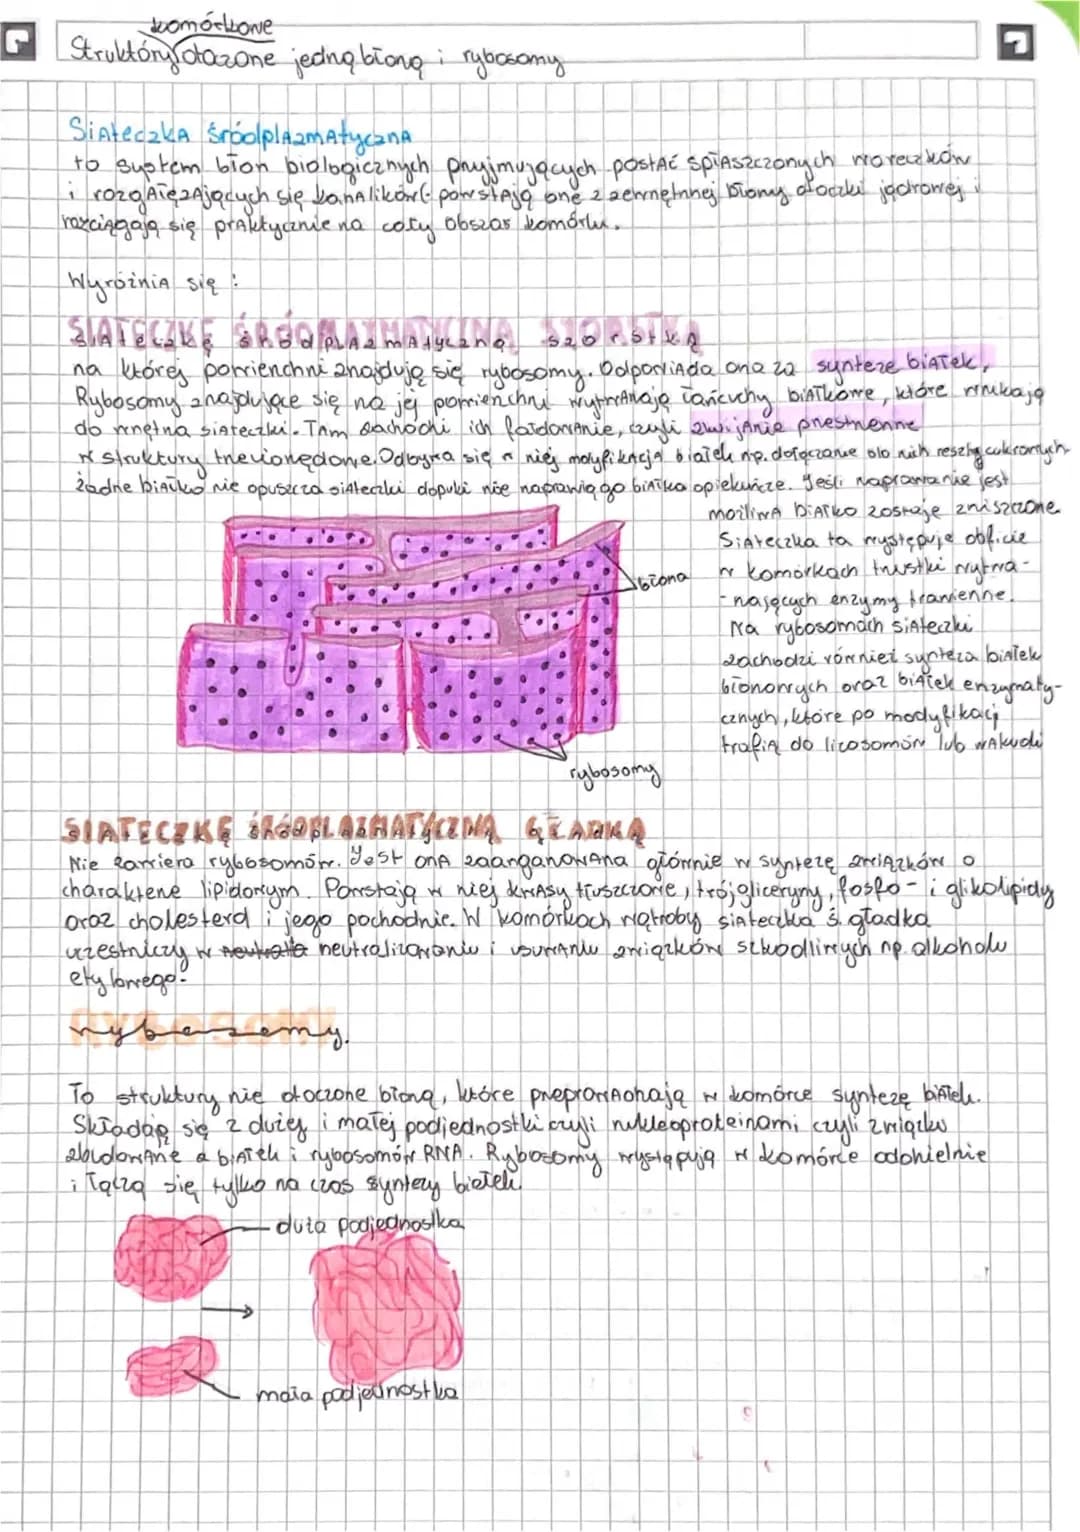 komórkowe
Struktóry otoczone jedną błoną i rybosomy
Siateczka śródplazmatyczna
to system błon biologicznych przyjmujących postać spłaszczonych woreczków
i rozgałęzających się kanalików (- powstają one z zewnętrznej błony otoczki jądrowej i
rozciągają się praktycznie na cały obszar komórki.
Wyróżnia się :
SIATECZKĘ ŚRÓDPLAZMATYCZNĄ SZORSTKĄ
na której powierzchni znajdują się rybosomy. Odpowiada ona za syntezę białek,
Rybosomy znajdujące się na jej powierzchni wytwarzają łańcuchy białkowe, które wnikają
do wnętrza siateczki. Tam zachodzi ich fałdowanie, czyli zwijanie przestrzenne
w struktury trzeciorzędowe. Odbywa się w niej modyfikacja białek np. dołączanie do nich reszty cukrowych
żadne białko nie opuszcza siateczki dopuki nie naprawią go białka opiekuńcze. Jeśli naprawianie jest
możliwa białko zostaje zniszczone.
Siateczka ta występuje obficie
w komórkach trzustki wytwa-
-rzających enzymy trawienne.
Na rybosomach siateczki
zachodzi również synteza białek
błonowych oraz białek enzymaty-
cznych, które po modyfikacji
trafią do lizosomów lub wakuoli
błona
rybosomy
SIATECZKĘ ŚRÓDPLAZMATYCZNĄ GŁADKĄ
Nie zawiera rybosomów. Jest ona zaangażowana głównie w syntezę związków o
charakterze lipidowym. Powstają w niej kwasy tłuszczowe, trójglicerydy, fosfo- i glikolipidy
oraz cholesterol i jego pochodnie. W komórkach wątroby siateczka ś. gładka
uczestniczy w neutralizowaniu i usuwaniu związków szkodliwych np. alkoholu
etylowego.
rybosomy.
To struktury nie otoczone błoną, które przeprowadzają w komórce syntezę białek.
Składają się z dużej i małej podjednostki czyli nukleoproteinami czyli związku
zbudowane z białek i rybosomów RNA. Rybosomy występują w komórce oddzielnie
i łączą się tylko na czas syntezy białek.
duża podjednostka
mała podjednostka